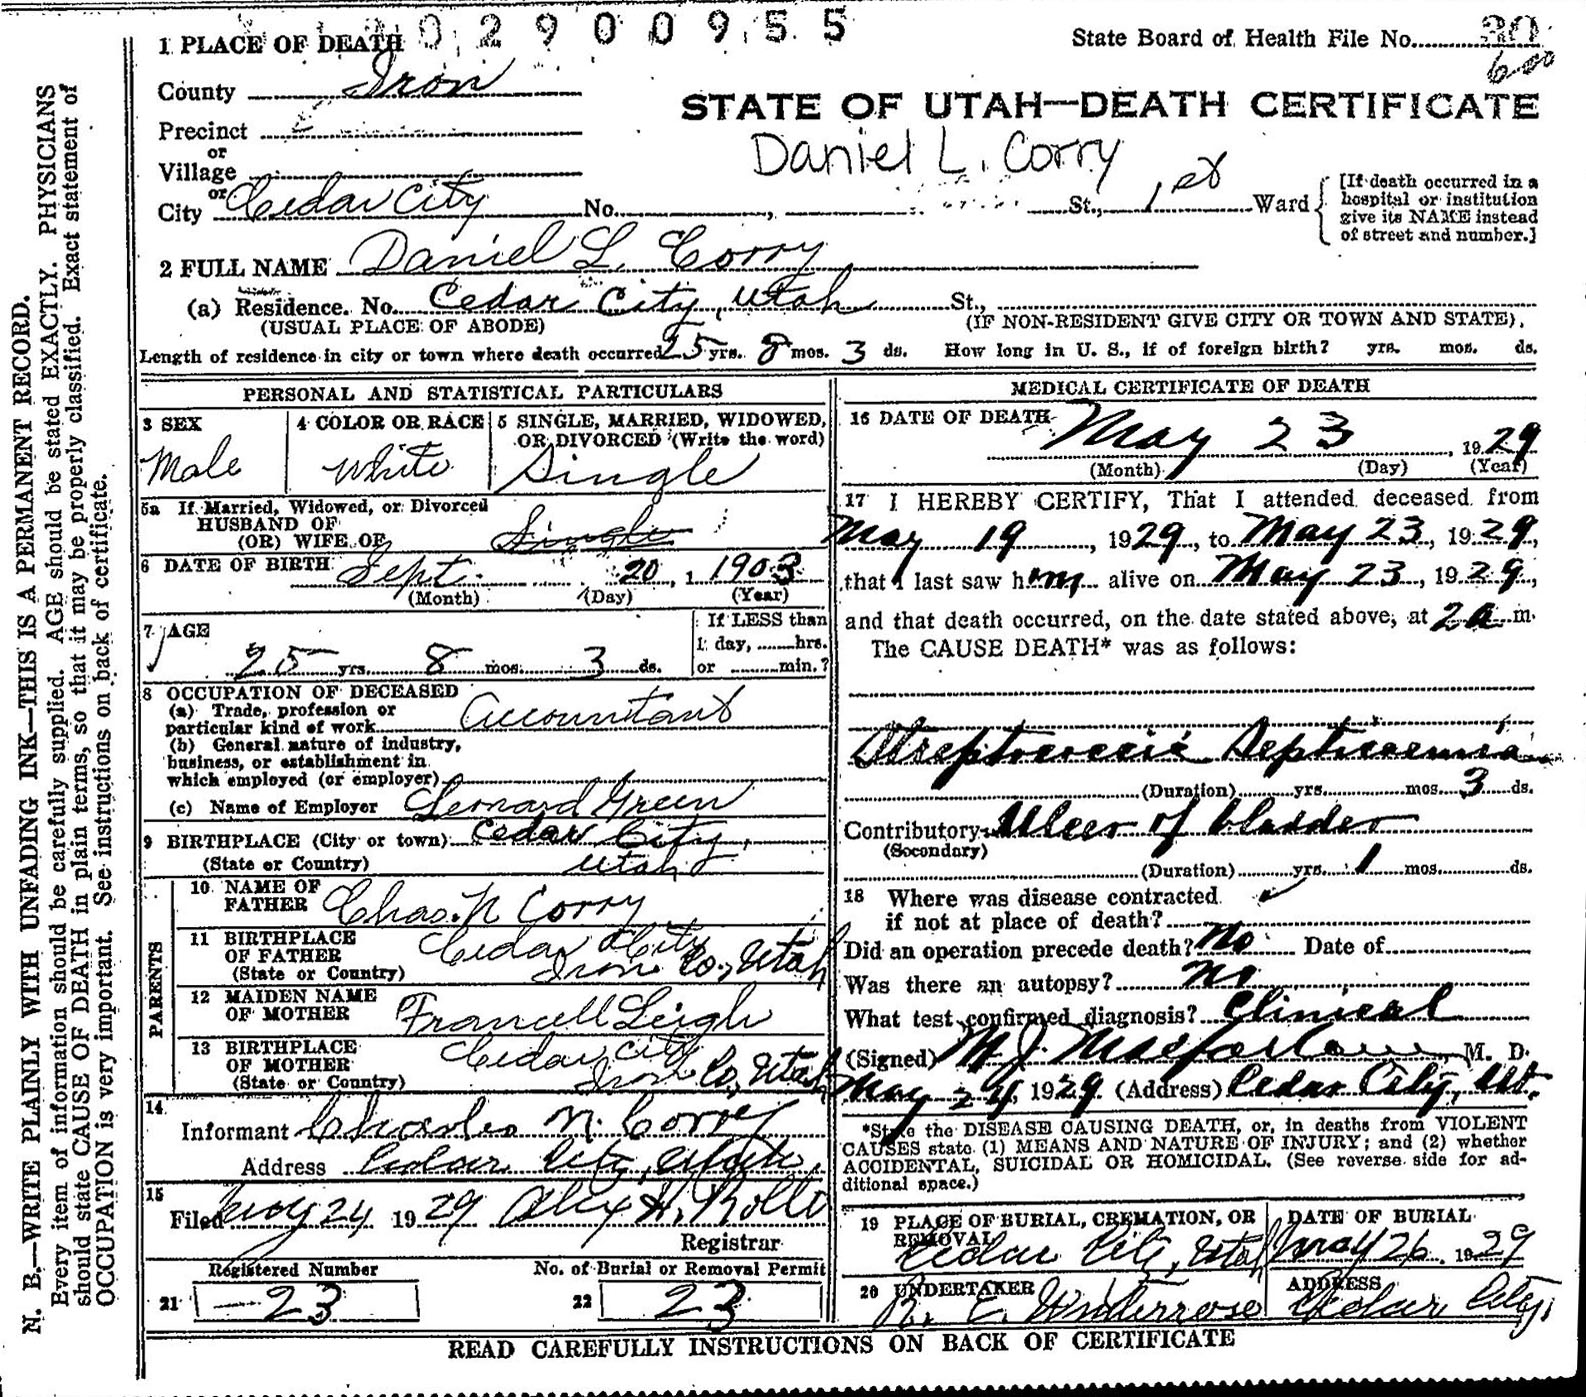 02900955
1 PLACE OF DEATH
State Board of Health File No. 30
600
County Iron
STATE OF UTAH—DEATH CERTIFICATE
Precinct
or
Daniel L. Corry
Village
or
City Cedar City No. St., 1st Ward
[If death occurred in a
hospital or institution
give its NAME instead
of street and number.]
2 FULL NAME Daniel L. Corry
(a) Residence. No. Cedar City, Utah St.,
(USUAL PLACE OF ABODE) (IF NON-RESIDENT GIVE CITY OR TOWN AND STATE)
Length of residence in city or town where death occurred 25 yrs. 8 mos. 3 ds. How long in U. S., if of foreign birth? yrs. mos. ds.
PERSONAL AND STATISTICAL PARTICULARS
3 SEX
Male
4 COLOR OR RACE
White
5 SINGLE, MARRIED, WIDOWED,
OR DIVORCED (Write the word)
Single
5a If Married, Widowed, or Divorced
HUSBAND OF
(OR) WIFE OF Single
6 DATE OF BIRTH Sept. 20, 1 1903
(Month) (Day) (Year)
7 AGE
25 yrs. 8 mos. 3 ds.
If LESS than
1 day, hrs.
or min.?
8 OCCUPATION OF DECEASED
(a) Trade, profession or
particular kind of work Accountant
(b) General nature of industry,
business, or establishment in
which employed (or employer)
(c) Name of Employer Leonard Green
9 BIRTHPLACE (City or town) Cedar City,
(State or Country) Utah
PARENTS
10 NAME OF
FATHER Chas. N Corry
11 BIRTHPLACE
OF FATHER Cedar City
(State or Country) Iron Co, Utah
12 MAIDEN NAME
OF MOTHER Francell Leigh
13 BIRTHPLACE
OF MOTHER Cedar City
(State or Country) Iron Co, Utah
14
Informant Charles N. Corry
Address Cedar City, Utah.
15
Filed May 24 1929 Alex H. Rollo
Registrar
Registered Number No. of Burial or Removal Permit
21 23 22 23
MEDICAL CERTIFICATE OF DEATH
16 DATE OF DEATH
May 23, 1929
(Month) (Day) (Year)
17 I HEREBY CERTIFY, That I attended deceased from
May 19, 1929, to May 23, 1929,
that I last saw him alive on May 23, 1929,
and that death occurred, on the date stated above, at 2a m.
The CAUSE DEATH* was as follows:
Streptococcic Septicaemia
(Duration) yrs. mos. 3 ds.
Contributory Ulcer of bladder
(Secondary)
(Duration) yrs. 1 mos. ds.
18 Where was disease contracted
if not at place of death?
Did an operation precede death? No Date of
Was there an autopsy? No
What test confirmed diagnosis? Clinical
(Signed) M J Macfarlane, M. D.
May 24, 1929 (Address) Cedar City, Ut.
*State the DISEASE CAUSING DEATH, or, in deaths from VIOLENT
CAUSES state (1) MEANS AND NATURE OF INJURY; and (2) whether
ACCIDENTAL, SUICIDAL OR HOMICIDAL. (See reverse side for ad-
ditional space.)
19 PLACE OF BURIAL, CREMATION, OR
REMOVAL
Cedar City, Utah
DATE OF BURIAL
May 26, 1929
20 UNDERTAKER
R. E. Winterrose
ADDRESS
Cedar City.
READ CAREFULLY INSTRUCTIONS ON BACK OF CERTIFICATE
N. B.—WRITE PLAINLY WITH UNFADING INK—THIS IS A PERMANENT RECORD.
Every item of information should be carefully supplied. AGE should be stated EXACTLY. PHYSICIANS
should state CAUSE OF DEATH in plain terms, so that it may be properly classified. Exact statement of
OCCUPATION is very important. See instructions on back of certificate.